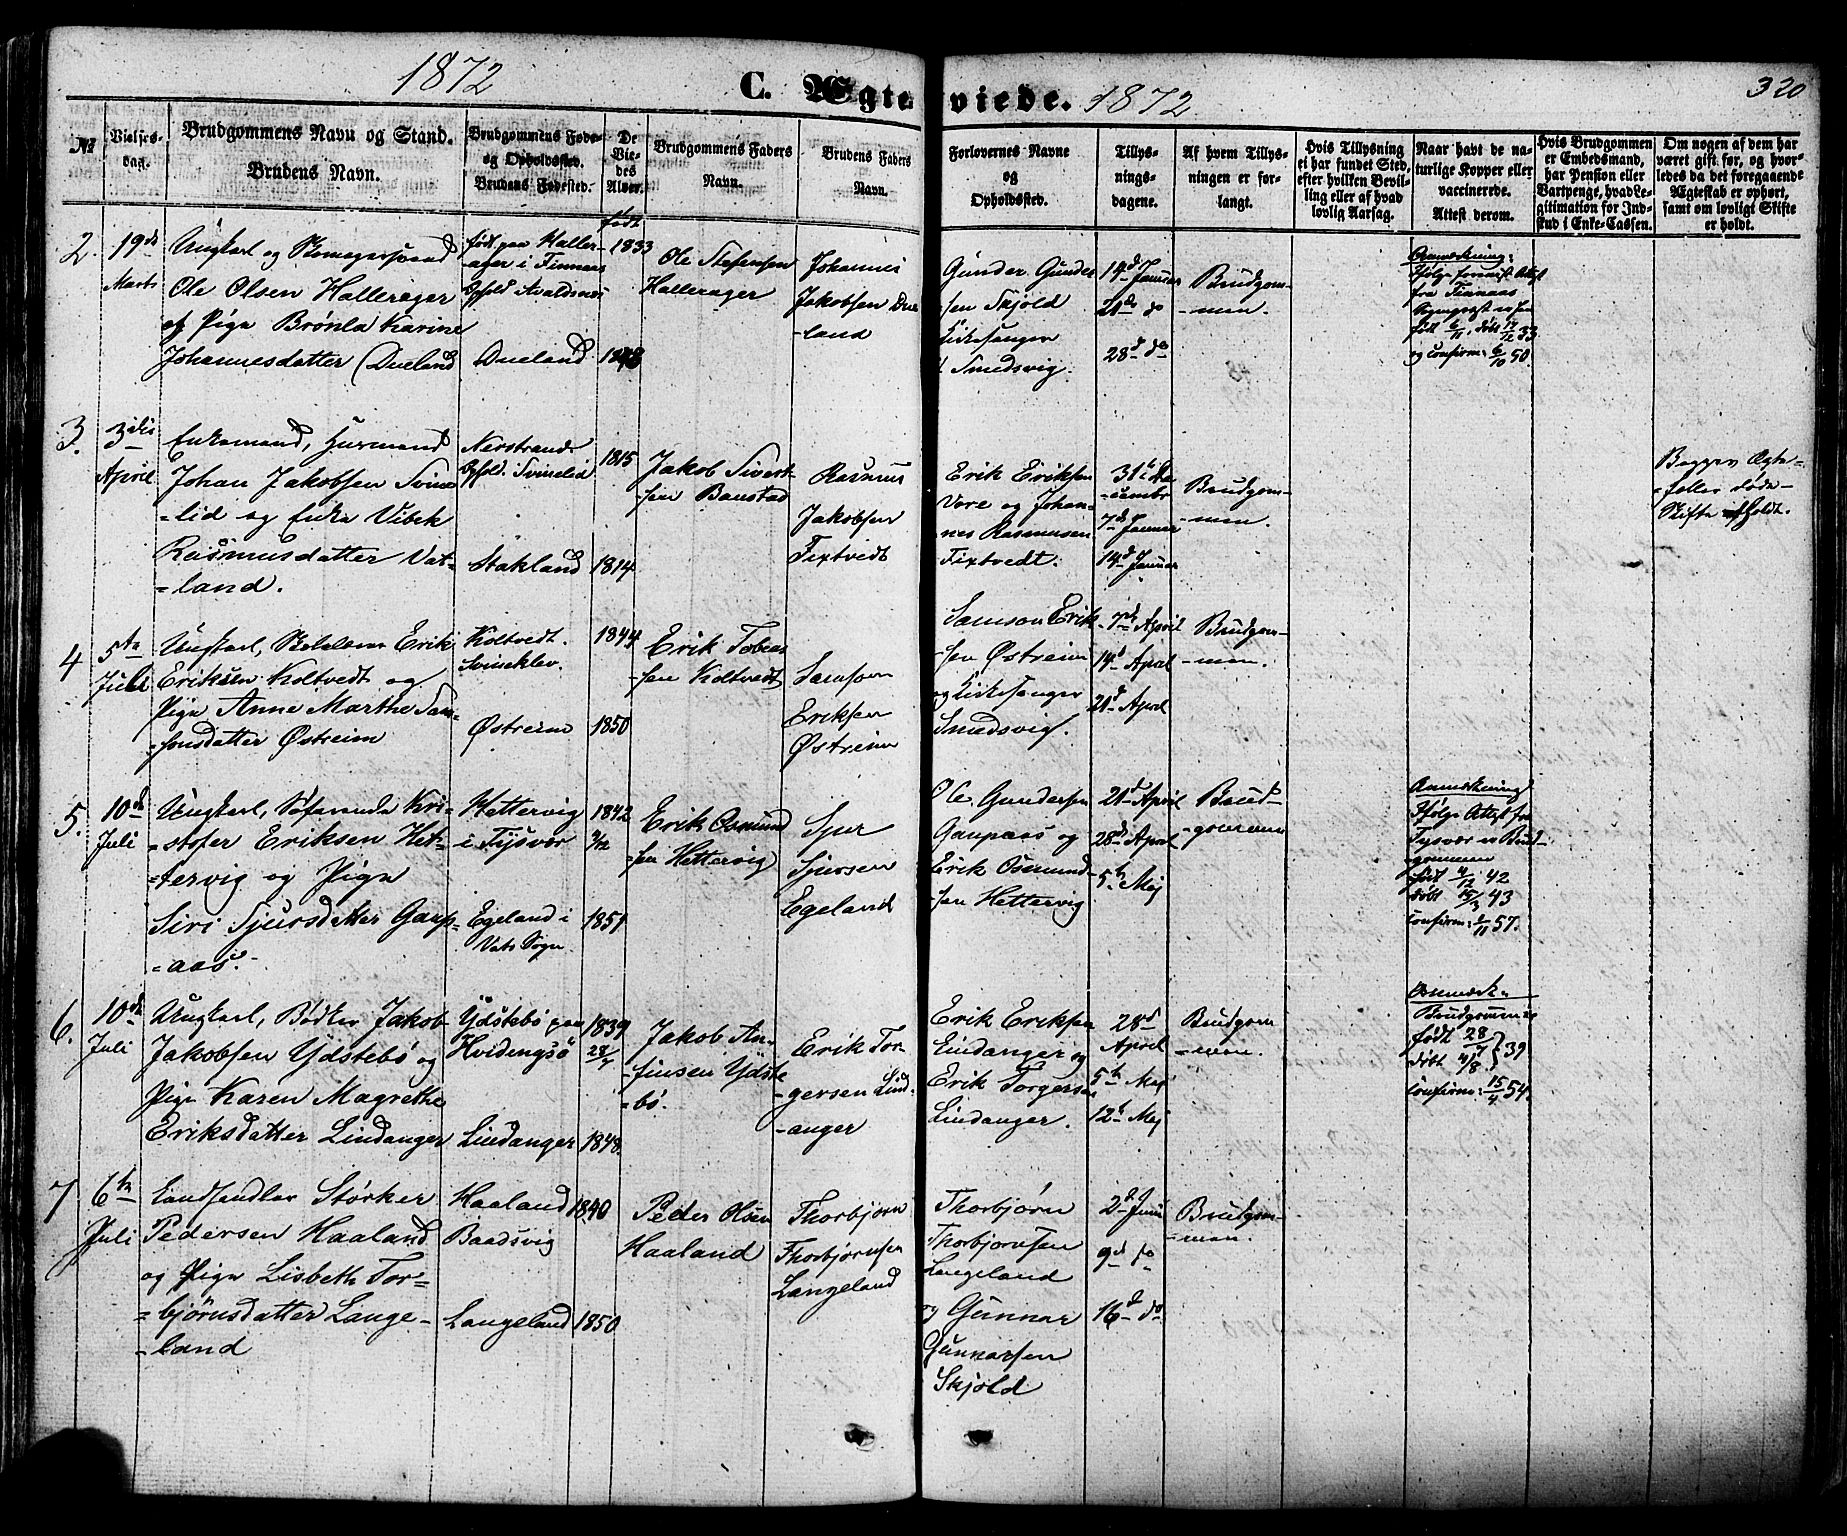 1872
C. Ægteviede.
1872
320
№
Vielses-
dag.
Brudgommens Navn og Stand.
Brudens Navn.
Brudgommens Føde-
og Opholdssted.
Brudens Fødested.
De
Vie-
des
Alder.
Brudgommens Faders
Navn.
Brudens Faders
Navn.
Forlovernes Navne
og
Opholdssted.
Tillys-
nings-
dagene.
Af hvem Tillys-
ningen er for-
langt.
Hvis Tillysning
ei har fundet Sted,
efter hvilken Bevil-
ling eller af hvad
lovlig Aarsag.
Naar havt de na-
turlige Kopper eller
vaccinerede.
Attest derom.
Hvis Brudgommen
er Embedsmand,
har Pension eller
Vartpenge, hvad Le-
gitimation for Ind-
skud i Enke-Cassen.
Om nogen af dem har
været gift før, og hvor-
ledes da det foregaaende
Ægteskab er ophørt,
samt om lovligt Skifte
er holdt.
født
2.
19de
Marts
Ungkarl og
Ole Olsen Hallerager
og Pige Brønla Karine
Johannesdatter Dueland
født paa Haller-
ager i Finnaas
Ophold Avaldsnes
Dueland
1833
Ole Stefensen
Hallerager
Johannes
Jakobsen Due
-land
Gunder Gunder
-sen Skjold
Kirkesanger
Smedsvig.
14d Januar
21de do
28d do
Brudgom-
-men.
Anmærkning:
Ifølge Attest
fra Finnaas
født 6/11, døbt 17/12 33
og confirm: 6/10 50.
3.
3die
April
Enkemand, Husmand
Johan Jakobsen Svine
-lid og Enke Vibek
Rasmusdatter Vat-
-land.
Nerstrand
Ophold. Svinelid
Stakland
1815
1814
Jakob Sivert-
-sen Baustad
Rasmus
Jakobsen
Fixtvedt
Erik Eriksen
Vore og Johan-
nes Rasmusen
Fixtvedt.
31te De
-cember
7de Januar
14d Januar
Brudgom-
-men.
Begges Ægte-
-feller døde-
Skifte afholdt.
4
5te
Juli
Ungkarl, Erik
Eriksen Koltvedt og
Pige Anne Marthe Sam-
-sonsdatter Østreim
Koltvedt.
Svineklev.
Østreim
1844
1850
Erik Tobias
-sen Koltvedt
Samson
Eriksen
Østreim
Samson Erik-
-sen Østreim
og Kirkesanger
Smedsvig.
7de April
14d April
21d April
Brudgom-
-men.
5.
10de
Juli
Ungkarl, Søfarende Kri-
-stofer Eriksen Het-
-tervig og Pige
Siri Sjursdatter Gaup-
-aas.
Hettervig
i Tysvær
Egeland i
Vats Sogn
1842
4/12
1851
Erik Osmund
-sen Hettervig
Sjur
Sjursen
Egeland
Ole Gundersen
Gaupaas og
Erik Osmund-
-sen Hettervig
21d April
28de April
5te Mej
Brud-
gommen
Anmærkning
Ifølge Attest fra
Tysvær er Brud-
gommen
født 4/12 42
døbt 15/3 43
confirm: 1/11 57.
6.
10de
Juli
Ungkarl, Bødker Jakob
Jakobsen Ydstebø og
Pige Karen Magrethe
Eriksdatter Lindanger
Ydstebø paa
Hvidengsø
Lindanger
1839
28/7
1848.
Jakob An-
-finsen Ydste
-bø.
Erik Tor-
-gersen Lind-
-anger
Erik Eriksen
Lindanger og
Erik Torgersen
Lindanger.
28d
April
5te Mej
12te Mej
Brudgom
-men.
Anmærk-
Brudgommen
født 28/7
døbt 4/8 } 39
confirm: 15/4 54.
7
6te
Juli
Landhandler Størker
Pedersen Haaland
og Pige Lisbeth Tor-
-bjørnsdatter Lange-
-land
Haaland
Baadsvig
Langeland
1840
1850
Peder Olsen
Haaland
Thorbjørn
Thorbjørnsen
Langeland
Thorbjørn
Thorbjørnsen
Langeland
og Gunnar
Gunnarsen
Skjold
2d Juni
9d do
16d do
Brudgom-
-men.